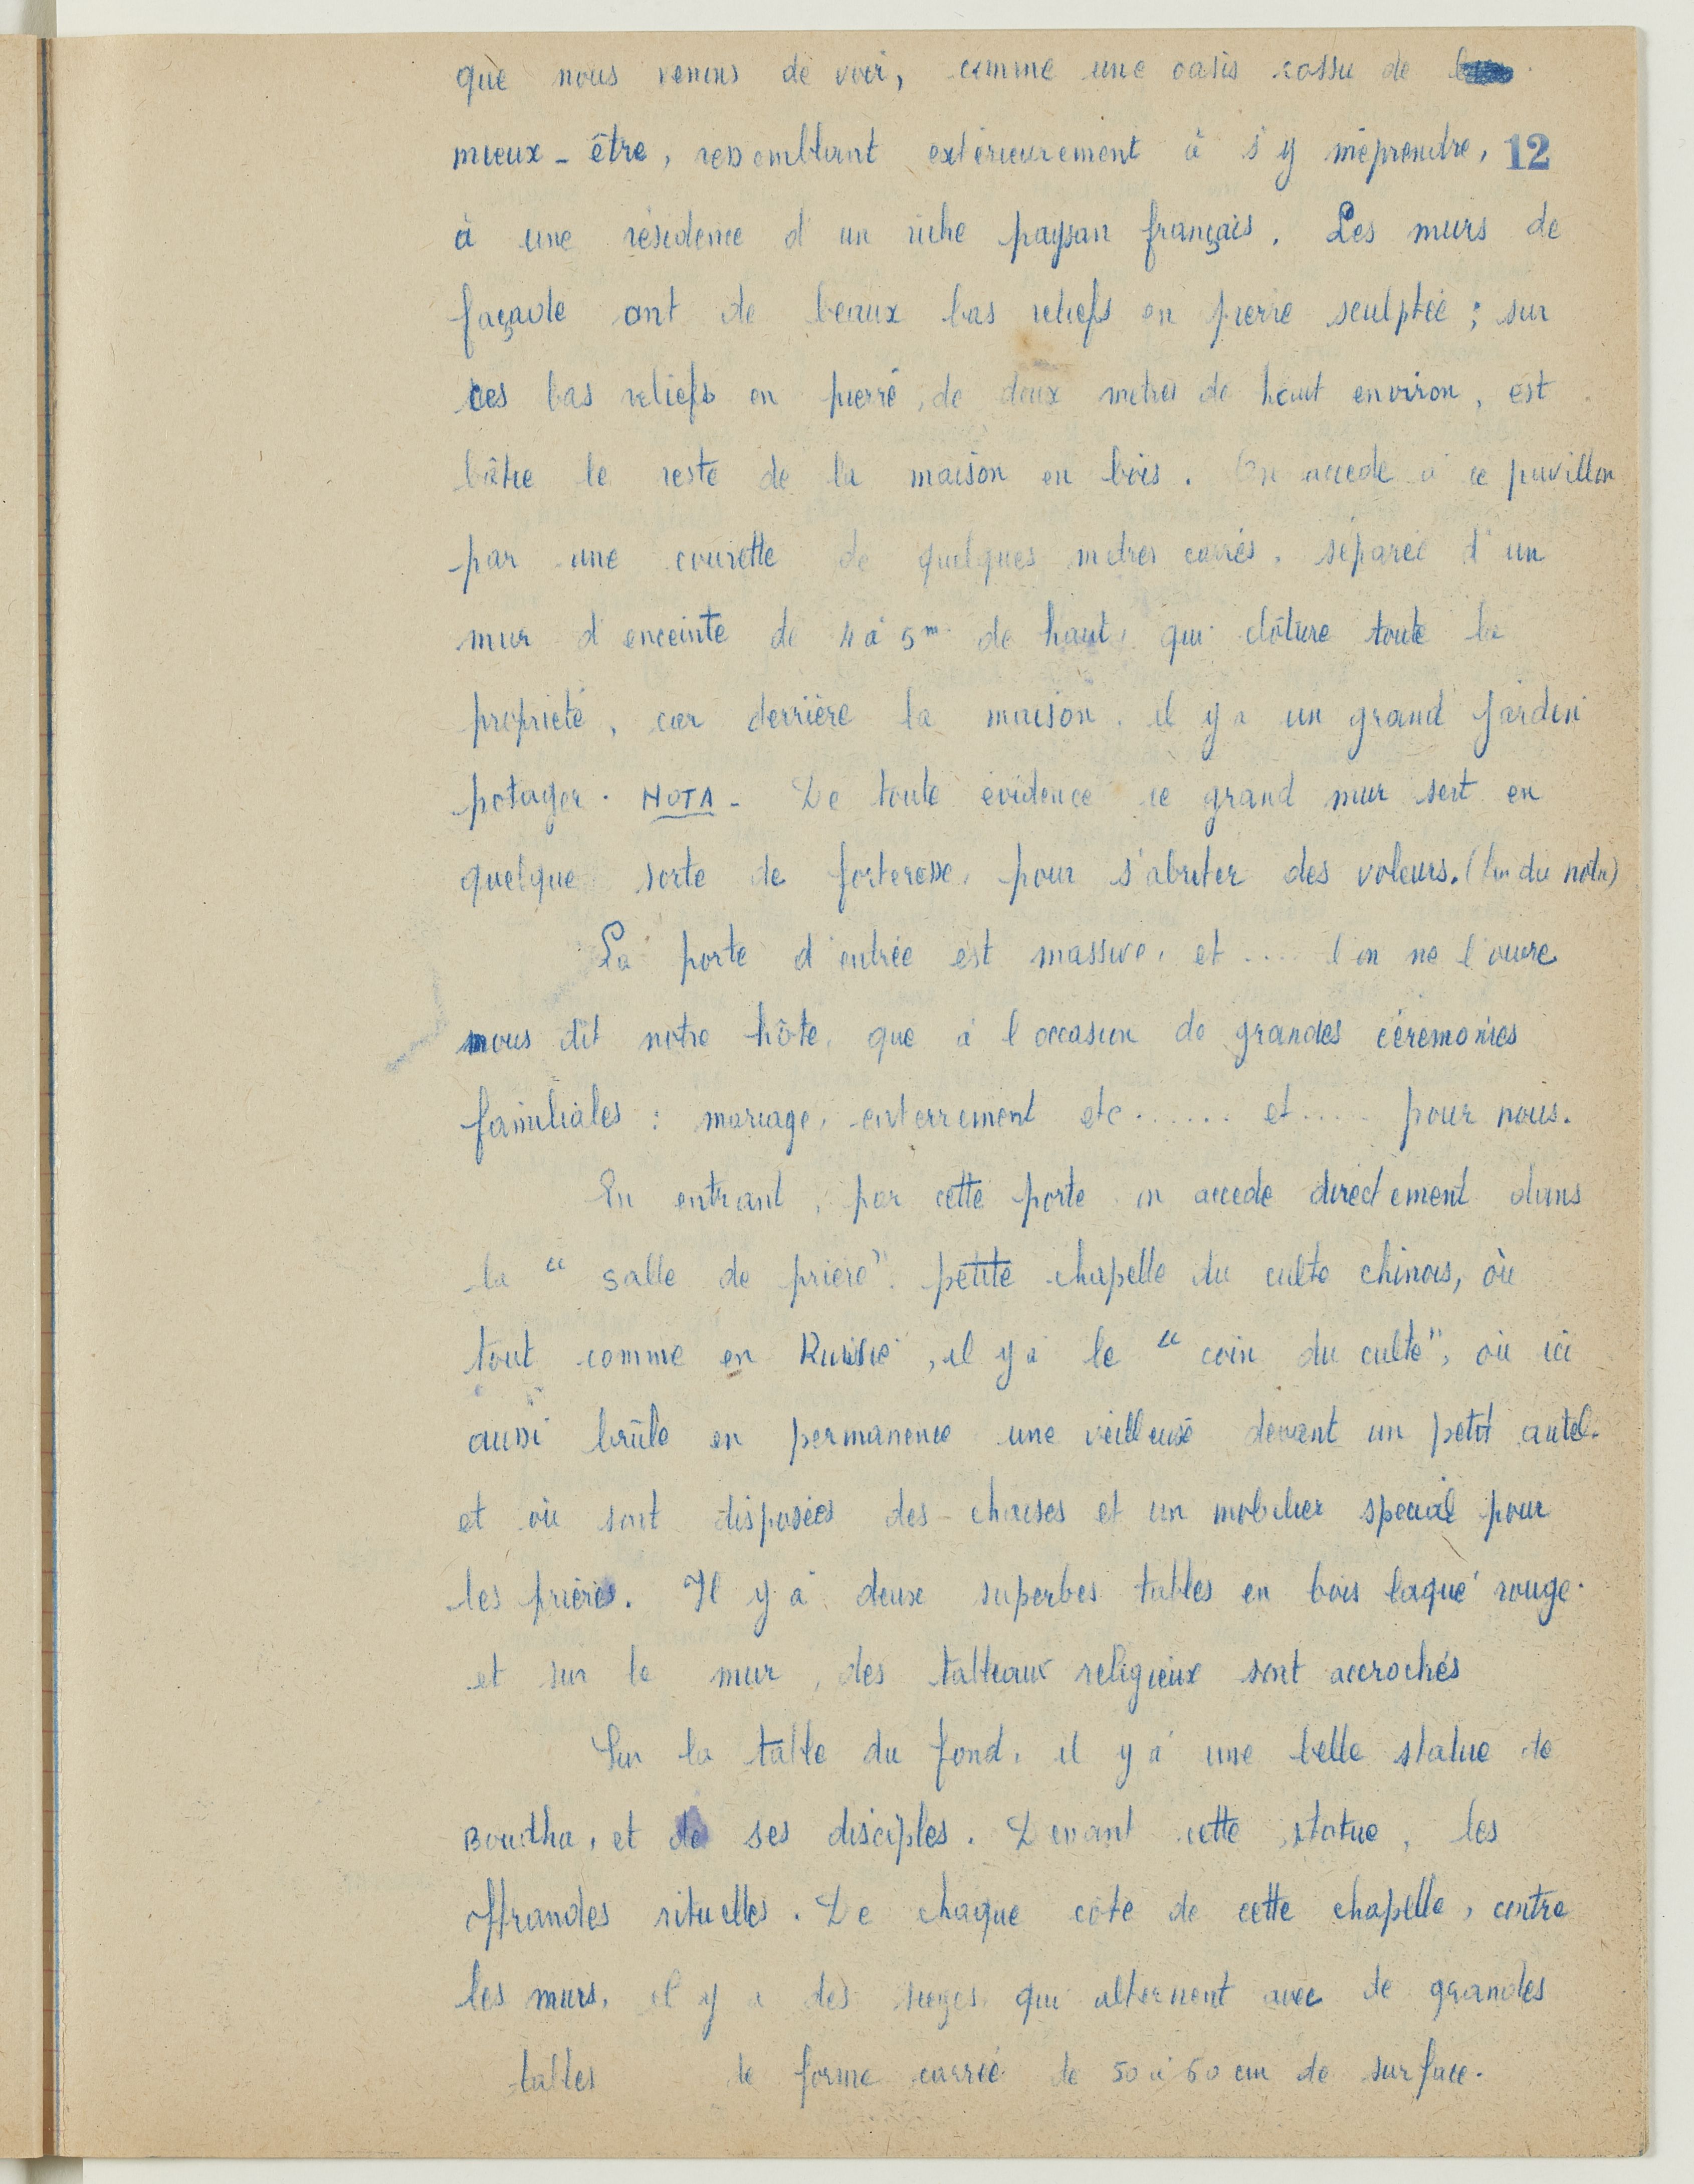 que nous venons de voir, comme une oasis cossu de
mieux-être, ressemblant extérieurement à s'y méprendre, 12
à une résidence d'un riche paysan français. Les murs de
façade ont de beaux bas reliefs en pierre sculptée ; sur
ces bas reliefs en pierre, de deux mètres de haut environ, est
bâtie le reste de la maison en bois. On accede à ce pavillon
par une courette de quelques mètres carrés, séparée d'un
mur d'enceinte de 4 à 5m de haut, qui clôture toute la
propriété, car derrière la maison, il y a un grand jardin
potager. NOTA - De toute évidence ce grand mur sert en
quelque sorte de forteresse, pour s'abriter des voleurs. (fin du nota)
La porte d'entrée est massive, et .... l'on ne l'ouvre
nous dit notre hôte, que à l'occasion de grandes cérémonies
familiales : mariage, enterrement etc ...... et ..... pour nous.
En entrant, par cette porte on accede directement dans
la " salle de prière". petite chapelle du culte chinois, où
tout comme en Russie, il y a le " coin du culte", où ici
aussi brûle en permanence une veilleuse devant un petit autel.
et où sont disposées des chaises et un mobilier special pour
les prières. Il y a deux superbes tables en bois laqué rouge.
et sur le mur, des tableaux religieux sont accrochés
Sur la table du fond, il y a une belle statue de
Boudha, et de ses disciples. Devant cette statue, les
offrandes rituelles. De chaque côté de cette chapelle, contre
les murs, il y a des sieges qui alternent avec de grandes
tables de forme carrée de 50 à 60 cm de surface.